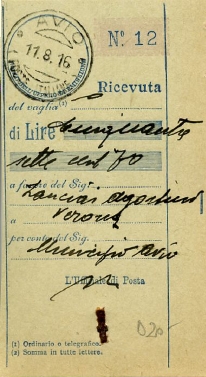 AVIO
11.8.16
POSTE ITALIANE
Nº 12
Ricevuta
del vaglia (1)
di Lire cinquanta
sette cent 70
a favore del Sig.
a Verona
per conto del Sig.
Municipio Avio
L'Ufficiale di Posta
D20-
(1) Ordinario o telegrafico.
(2) Somma in tutte lettere.